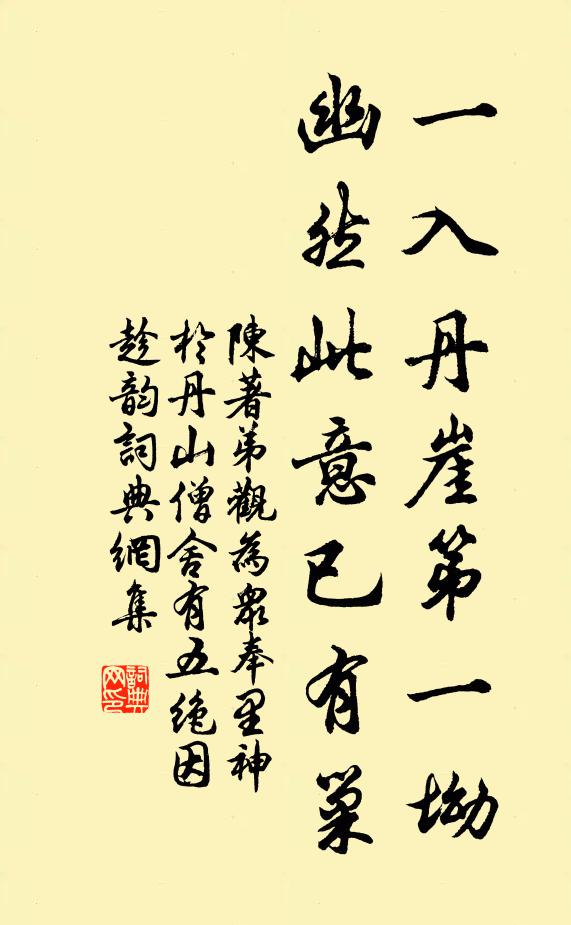 一入丹崖第一坳
幽然此意已有巢
陳著弟觀為衆奉里神
於丹山僧舍有五绝因
趁韵詞典網集
詞典网印